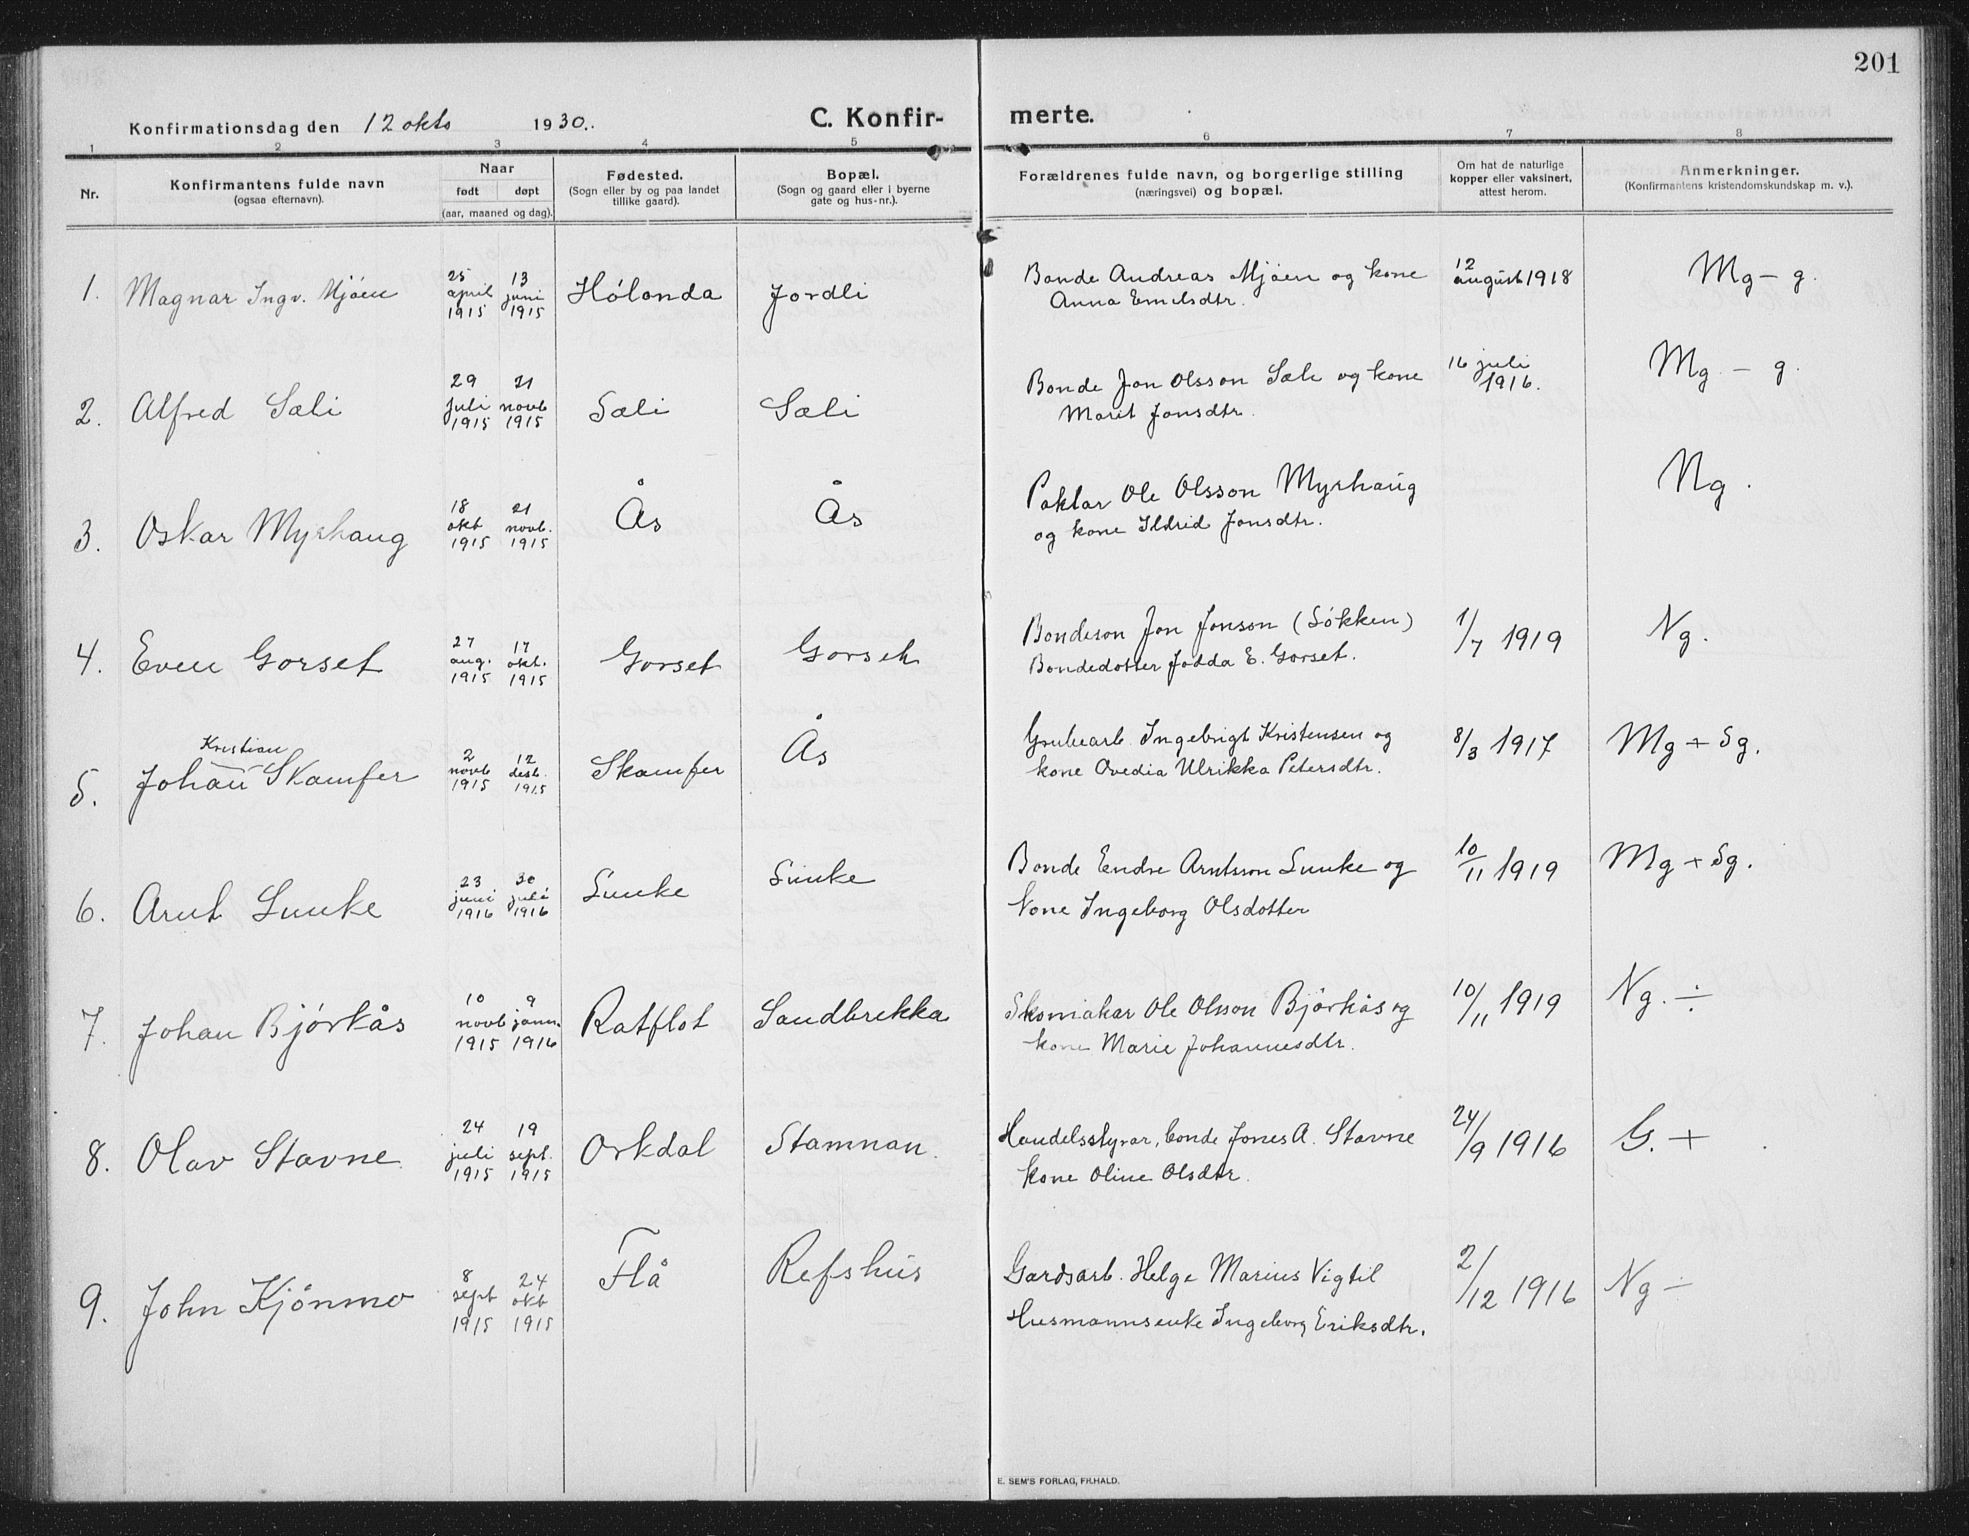 201
Konfirmationsdag den 12 okto 1930.
C. Konfirmerte.
1 2 3 4 5 6 7 8
Nr.
Konfirmantens fulde navn
(ogsaa efternavn).
Naar
født døpt
(aar, maaned og dag).
Fødested.
(Sogn eller by og paa landet
tillike gaard).
Bopæl.
(Sogn og gaard eller i byerne
gate og hus-nr.).
Forældrenes fulde navn, og borgerlige stilling
(næringsvei) og bopæl.
Om hat de naturlige
kopper eller vaksinert,
attest herom.
Anmerkninger.
(Konfirmantens kristendomskundskap m. v.).
1. Magnar Ingv. Mjøen 25 april 1915 13 juni 1915 Hólonda Jordli
Bonde Andreas Mjøen og kone
Anna Emilsdtr.
12 august 1918 Mg – g.
2. Alfred Sæli 29 juli 1915 21 novb 1915 Sæli Sæli
Bonde Jon Olsson Sæli og kone
Marit Jonsdtr.
16 juli 1916. Mg – g.
3. Oskar Myrhaug 18 okt 1915 21 novb. 1915 Ås Ås
Paktar Ole Olsson Myrhaug
og kone Ildrid Jonsdtr.
Ng.
4. Even Gorset 27 aug. 1915 17 okt. 1915 Gorset Gorset
Bondeson Jon Jonson (Søkken)
Bondedotter Jodda E. Gorset.
1/7 1919 Ng.
5. Johan Kristian Skamfer 2 novb 1915 12 desb. 1915 Skamfer Ås
Grubearb. Ingebrigt Kristensen og
kone Ovedia Ulrikka Petersdtr.
8/3 1917 Mg + Sg.
6. Arnt Lunke 23 juni 1916 30 juli 1916 Lunke Lunke
Bonde Endre Arntsson Lunke og
Kone Ingeborg Olsdotter
10/11 1919 Mg + Sg.
7. Johan Bjórkås 10 novb 1915 9 jann. 1916 Ratflot Sandbrekka
Skomakar Ole Olsson Bjórkås og
kone Marie Johannesdtr.
10/11 1919 Ng. ÷
8. Olav Stavne 24 juli 1915 19 sept. 1915 Orkdal Stamnan.
Handelsstyrar, bonde Jones A. Stavne
kone Oline Olsdtr.
24/9 1916 G. +
9. John Kjónmo 8 sept 1915 24 okt 1915 Flå Refshus
Gardsarb. Helge Marius Vigtil
Husmannsenke Ingeborg Eriksdtr.
2/12 1916 Ng –
E. SEM'S FORLAG, FR.HALD.